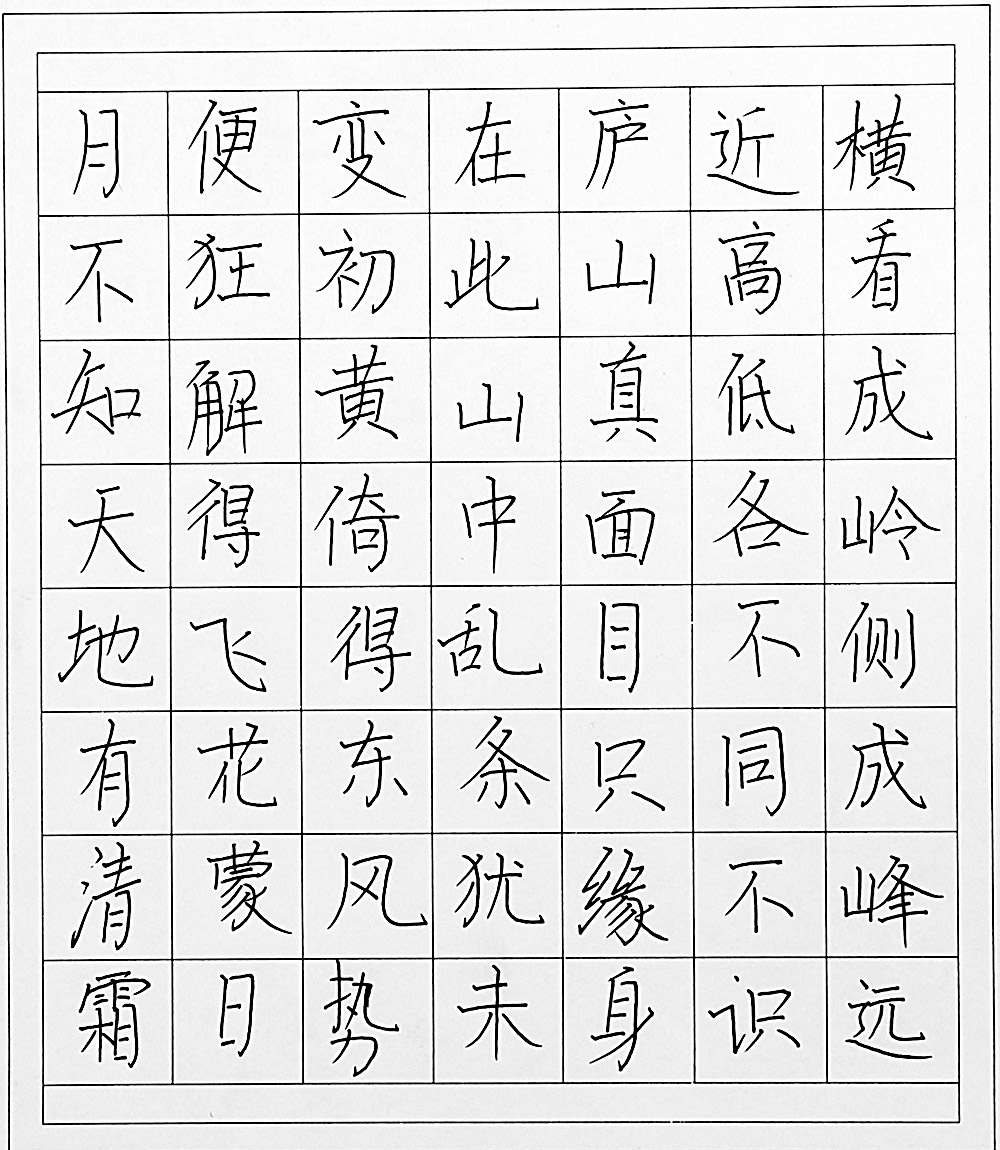 横看成岭侧成峰远
近高低各不同不识
庐山真面目只缘身
在此山中乱条犹未
变初黄倚得东风势
便狂解得飞花蒙日
月不知天地有清霜